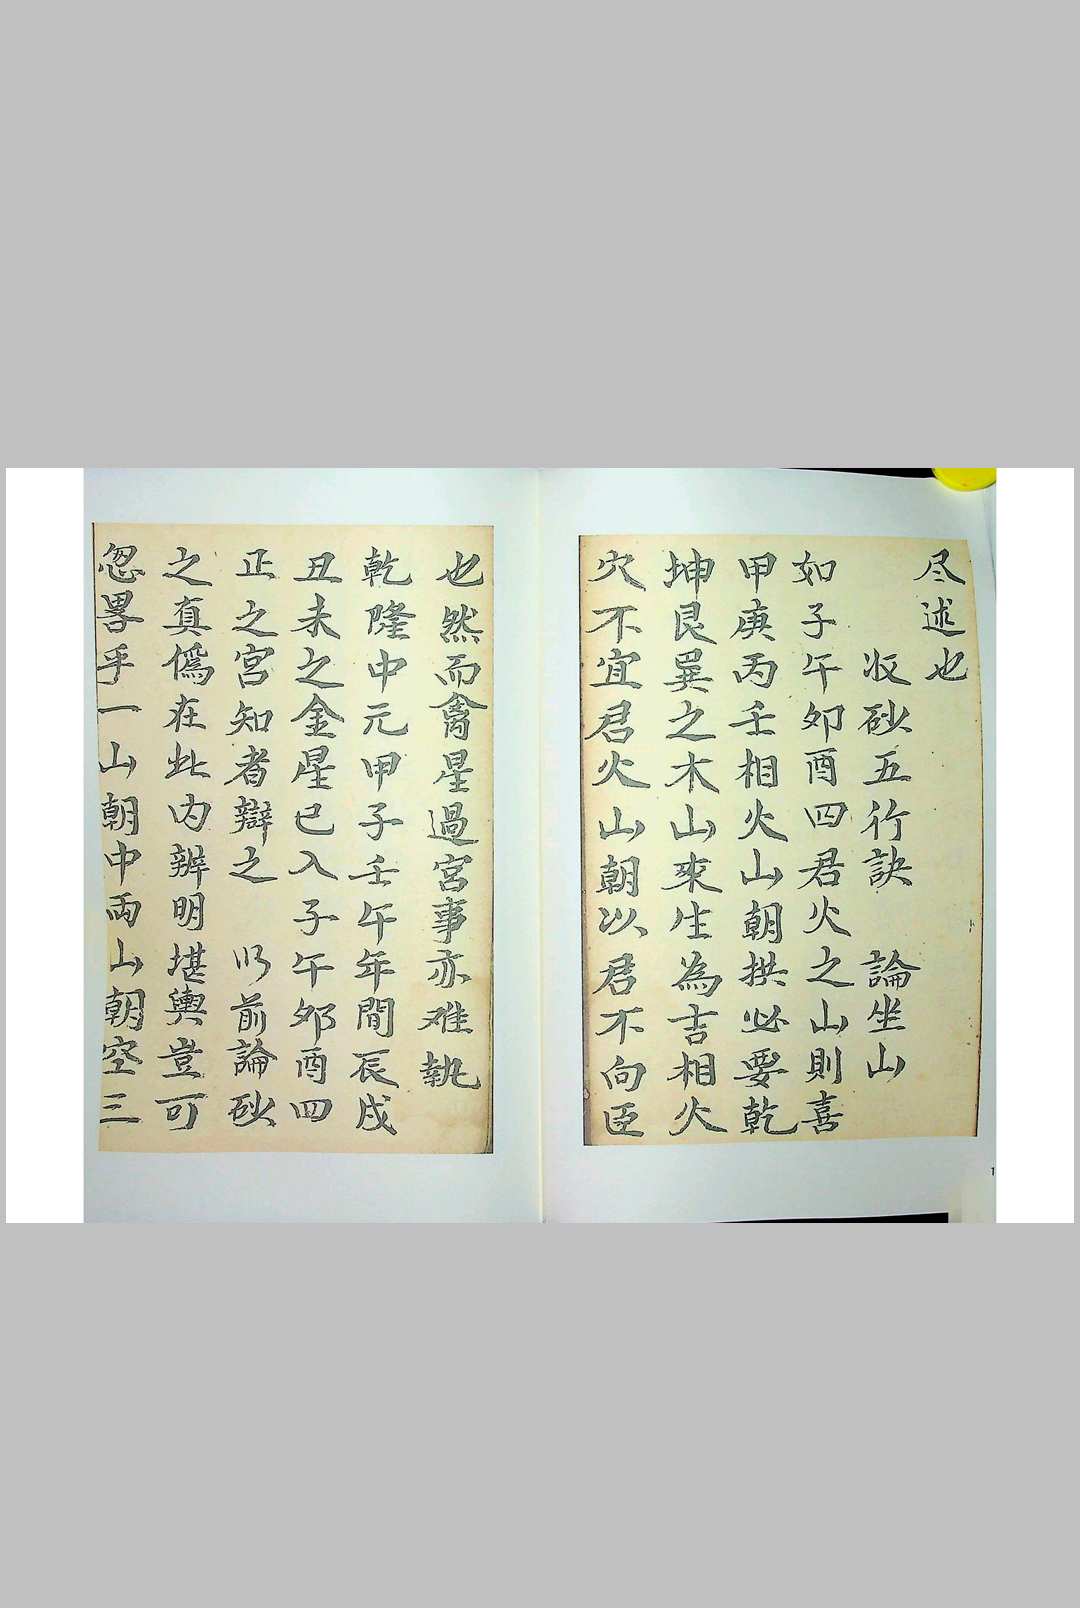 尽述也
收砂五行訣　論坐山
如子午卯酉四君火之山則喜
甲庚丙壬相火山朝拱必要乾
坤艮巽之木山來生為吉相火
穴不宜君火山朝以君不向臣
也然而禽星過宮事亦难執
乾隆中元甲子壬午年間辰戌
丑未之金星已入子午夘酉四
正之宮知者辯之　以前論砂
之真僞在此内辨明堪輿豈可
忽畧乎一山朝中両山朝空三